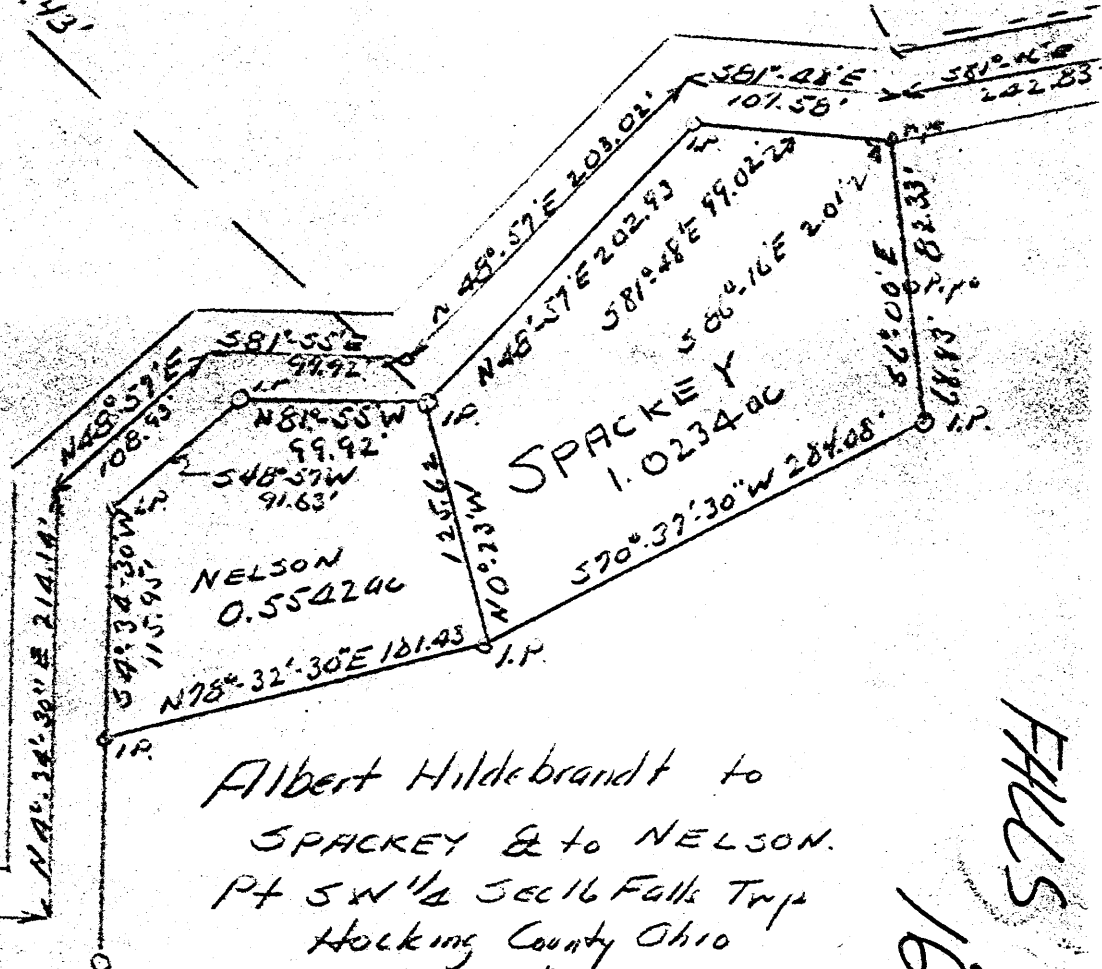 .43'
S81°-48'E
107.58'
S81°-16'E
242.83'
N 48°-57'E 203.02'
I.P.
N48°-57'E 202.93
S81°48'E 99.02'
S86°-16'E 2.01'
S6°-00'E
82.33'
68.83'
P.P.
I.P.
S81°-55'E
99.92
N48°-57'E
108.93'
I.P.
N81°-55'W
99.92'
I.P.
S48°-57W
91.63'
I.P.
SPACKEY
1.0234 ac
S4°-34'-30"W
115.95'
NELSON
0.5542 ac
125.62
N0°-23'W
S70°-37'-30"W 284.08'
N78°-32'-30"E 181.43
I.P.
I.P.
N4°-34'-30"E 214.14'
Albert Hildebrandt to
SPACKEY & to NELSON.
Pt SW 1/4 Sec 16 Falls Twp
Hocking County Ohio
FALLS
16